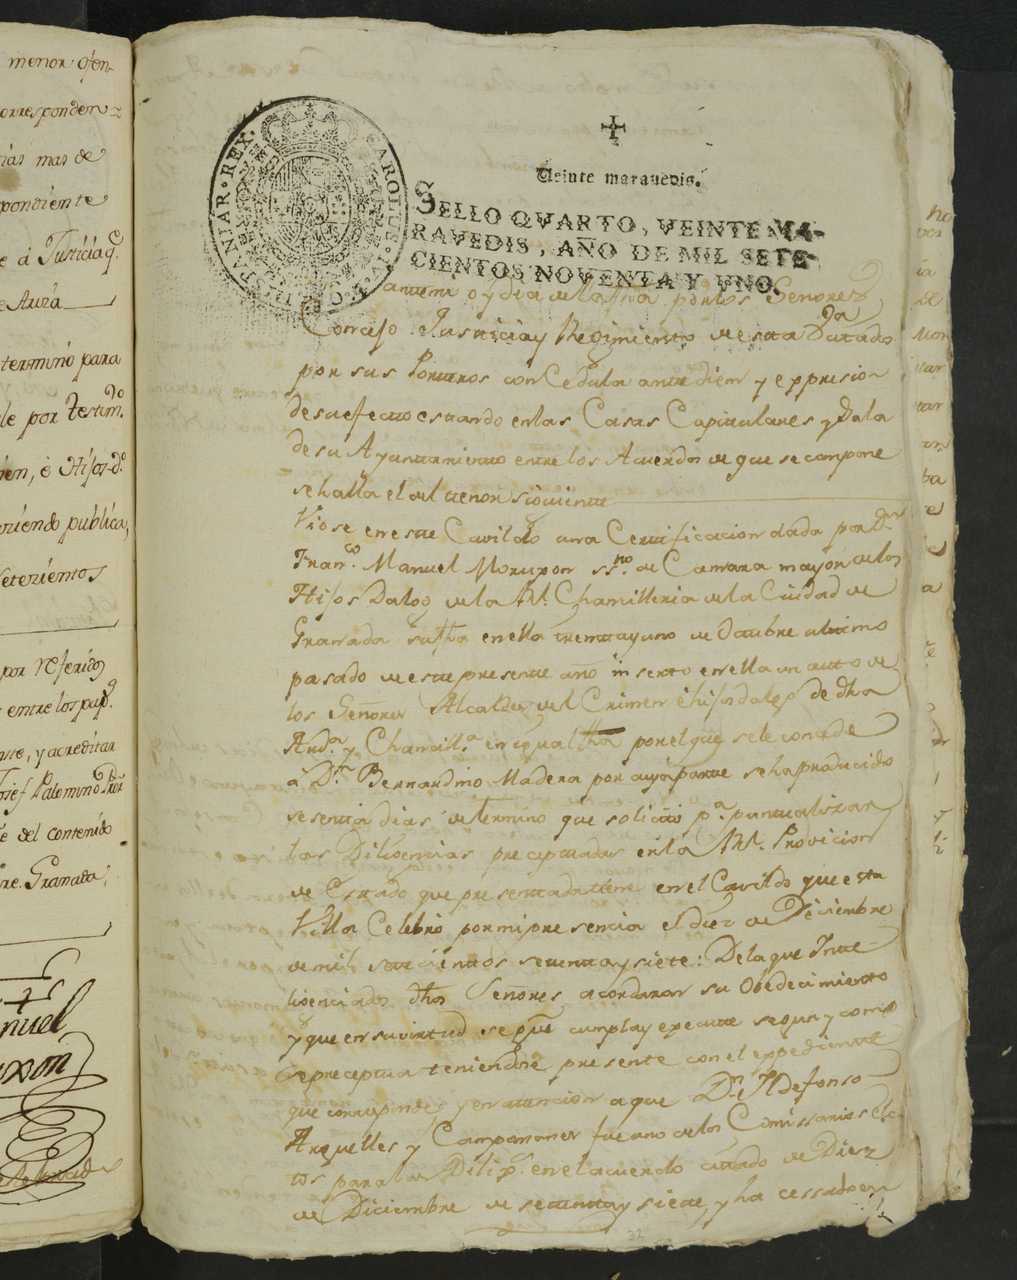 menor ofen-
orresponden-
rias mas de
pondiente
e á Justicia q.e
e Auza
termino para
le por testim.o
ien, ó Hijos-d.o
riendo publica,
setezientos
por referidos
entre los pap.s
nse, y acreditar
osef Palomino Por
e del contenido
re. Granada
nuel
uxon
CAROLUS IV D G HISPANIAR REX
Veinte maravedis.
SELLO QVARTO, VEINTE MA-
RAVEDIS, AÑO DE MIL SETE-
CIENTOS NOVENTA Y UNO.
antemi oy dia de la fha por los Señores
Concejo Justicia y Regimiento de esta V.a citados
por sus Porteros con Cedula ante diem y expresion
de su efecto estando en las Casas Capitulares y Sala
de su Ayuntamiento entre los Acuerdos de que se compone
se halla el del tenor siguiente
Viose en este Cavildo una Certificacion dada por D.n
Fran.co Manuel Moruxon ss.no de Camara mayor de los
Hijos Dalgo de la Rl. Chanilleria de la Ciudad de
Granada su fha en ella treinta y uno de Octubre ultimo
pasado de este presente año inserto en ella un auto de
los Señores Alcaldes del Crimen e hijosdalgo de dha
Aud.a y Chanill.a en igual fha por el que se le concede
a D.n Bernardino Madera por cuya parte se ha producido
sesenta dias de termino que solicitó p.a puntualizar
las Diligencias preceptuadas en la Rl. Provicion
de Estado que presentada tiene en el Cavildo que esta
Villa Celebró por mi presencia el diez de Diciembre
de mil setecientos setenta y siete: De la que Inte-
ligenciados dhos Señores acordaron su Obedecimiento
y que en su virtud se gue cumpla y execute segun y como
se preceptua teniendose presente con el expediente
que corresponde, y en atencion a que D.n Ildefonso
Arguelles y Campomanes fue uno de los Comissarios Elec-
tos para las Dilig.s en el acuerdo citado de Diez
de Diciembre de setenta y siete, y ha cessado en
32